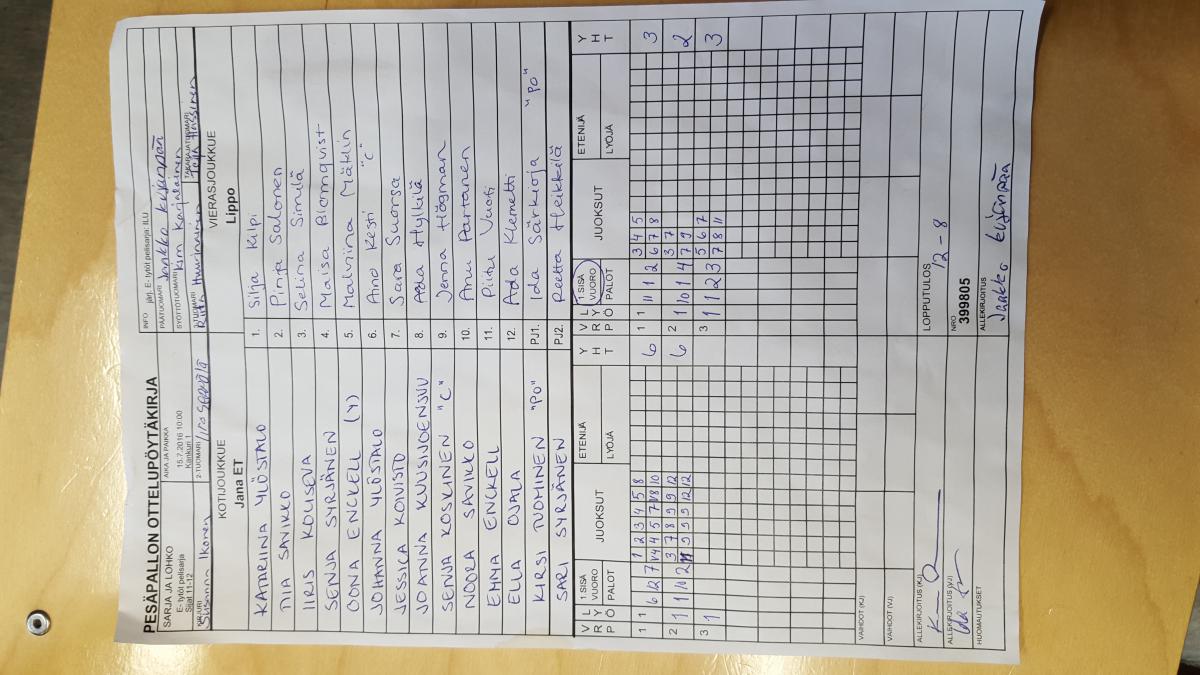 PESÄPALLON OTTELUPÖYTÄKIRJA
SARJA JA LOHKO
E- tytöt pelisarja
Sijat 11-12
AIKA JA PAIKKA
15.7.2016 10:00
Kankuri 1
INFO järj. E- tytöt pelisarja: ILU
PÄÄTUOMARI Jaakko Kujanpää
SYÖTTÖTUOMARI Kim Karjalainen
KIRJURI Susanna Ikonen
2-TUOMARI
3-TUOMARI
TAKARAJATUOMARI
KOTIJOUKKUE
Jana ET
VIERASJOUKKUE
Lippo
KATARIINA YLÖSTALO 1. Silja Kilpi
TIIA SAVIKKO 2. Pinja Salonen
IIRIS KOLISEVA 3. Selina Similä
SENJA SYRJÄNEN 4. Maisa Blomqvist
OONA ENCKELL (Y) 5. Malviina Mäklin
JOHANNA YLÖSTALO 6. Aino Kesti "C"
JESSICA KOIVISTO 7. Sara Suorsa
JOANNA KUUSIJOENSUU 8. Ada Hylkilä
SENJA KOSKINEN "C" 9. Jenna Högman
NOORA SAVIKKO 10. Anu Partanen
EMMA ENCKELL 11. Piitu Vuoti
ELLA OJALA 12. Ada Klemetti
KIRSI TUOMINEN "PO" PJ1. Ida Särkioja "PO"
SARI SYRJÄNEN PJ2. Reetta Heikkilä
VRP LYÖ 1.SISÄ VUORO PALOT JUOKSUT ETENIJÄ LYÖJÄ YHT VRP LYÖ 1.SISÄ VUORO PALOT JUOKSUT ETENIJÄ LYÖJÄ YHT
1 1 6 12 7 1 2 3 4 5 8 6 1 1 11 1 2 3 4 5 3
6 7 8
2 1 1 11 2 3 7 8 9 9 12 6 2 1 10 1 4 3 7 2
7 9
3 1 3 1 1 2 3 5 6 7 3
7 8 11
VAIHDOT (KJ)
VAIHDOT (VJ)
ALLEKIRJOITUS (KJ)
LOPPUTULOS 12-8
ALLEKIRJOITUS (VJ)
NRO
399805
HUOMAUTUKSET
ALLEKIRJOITUS
Jaakko Kujanpää